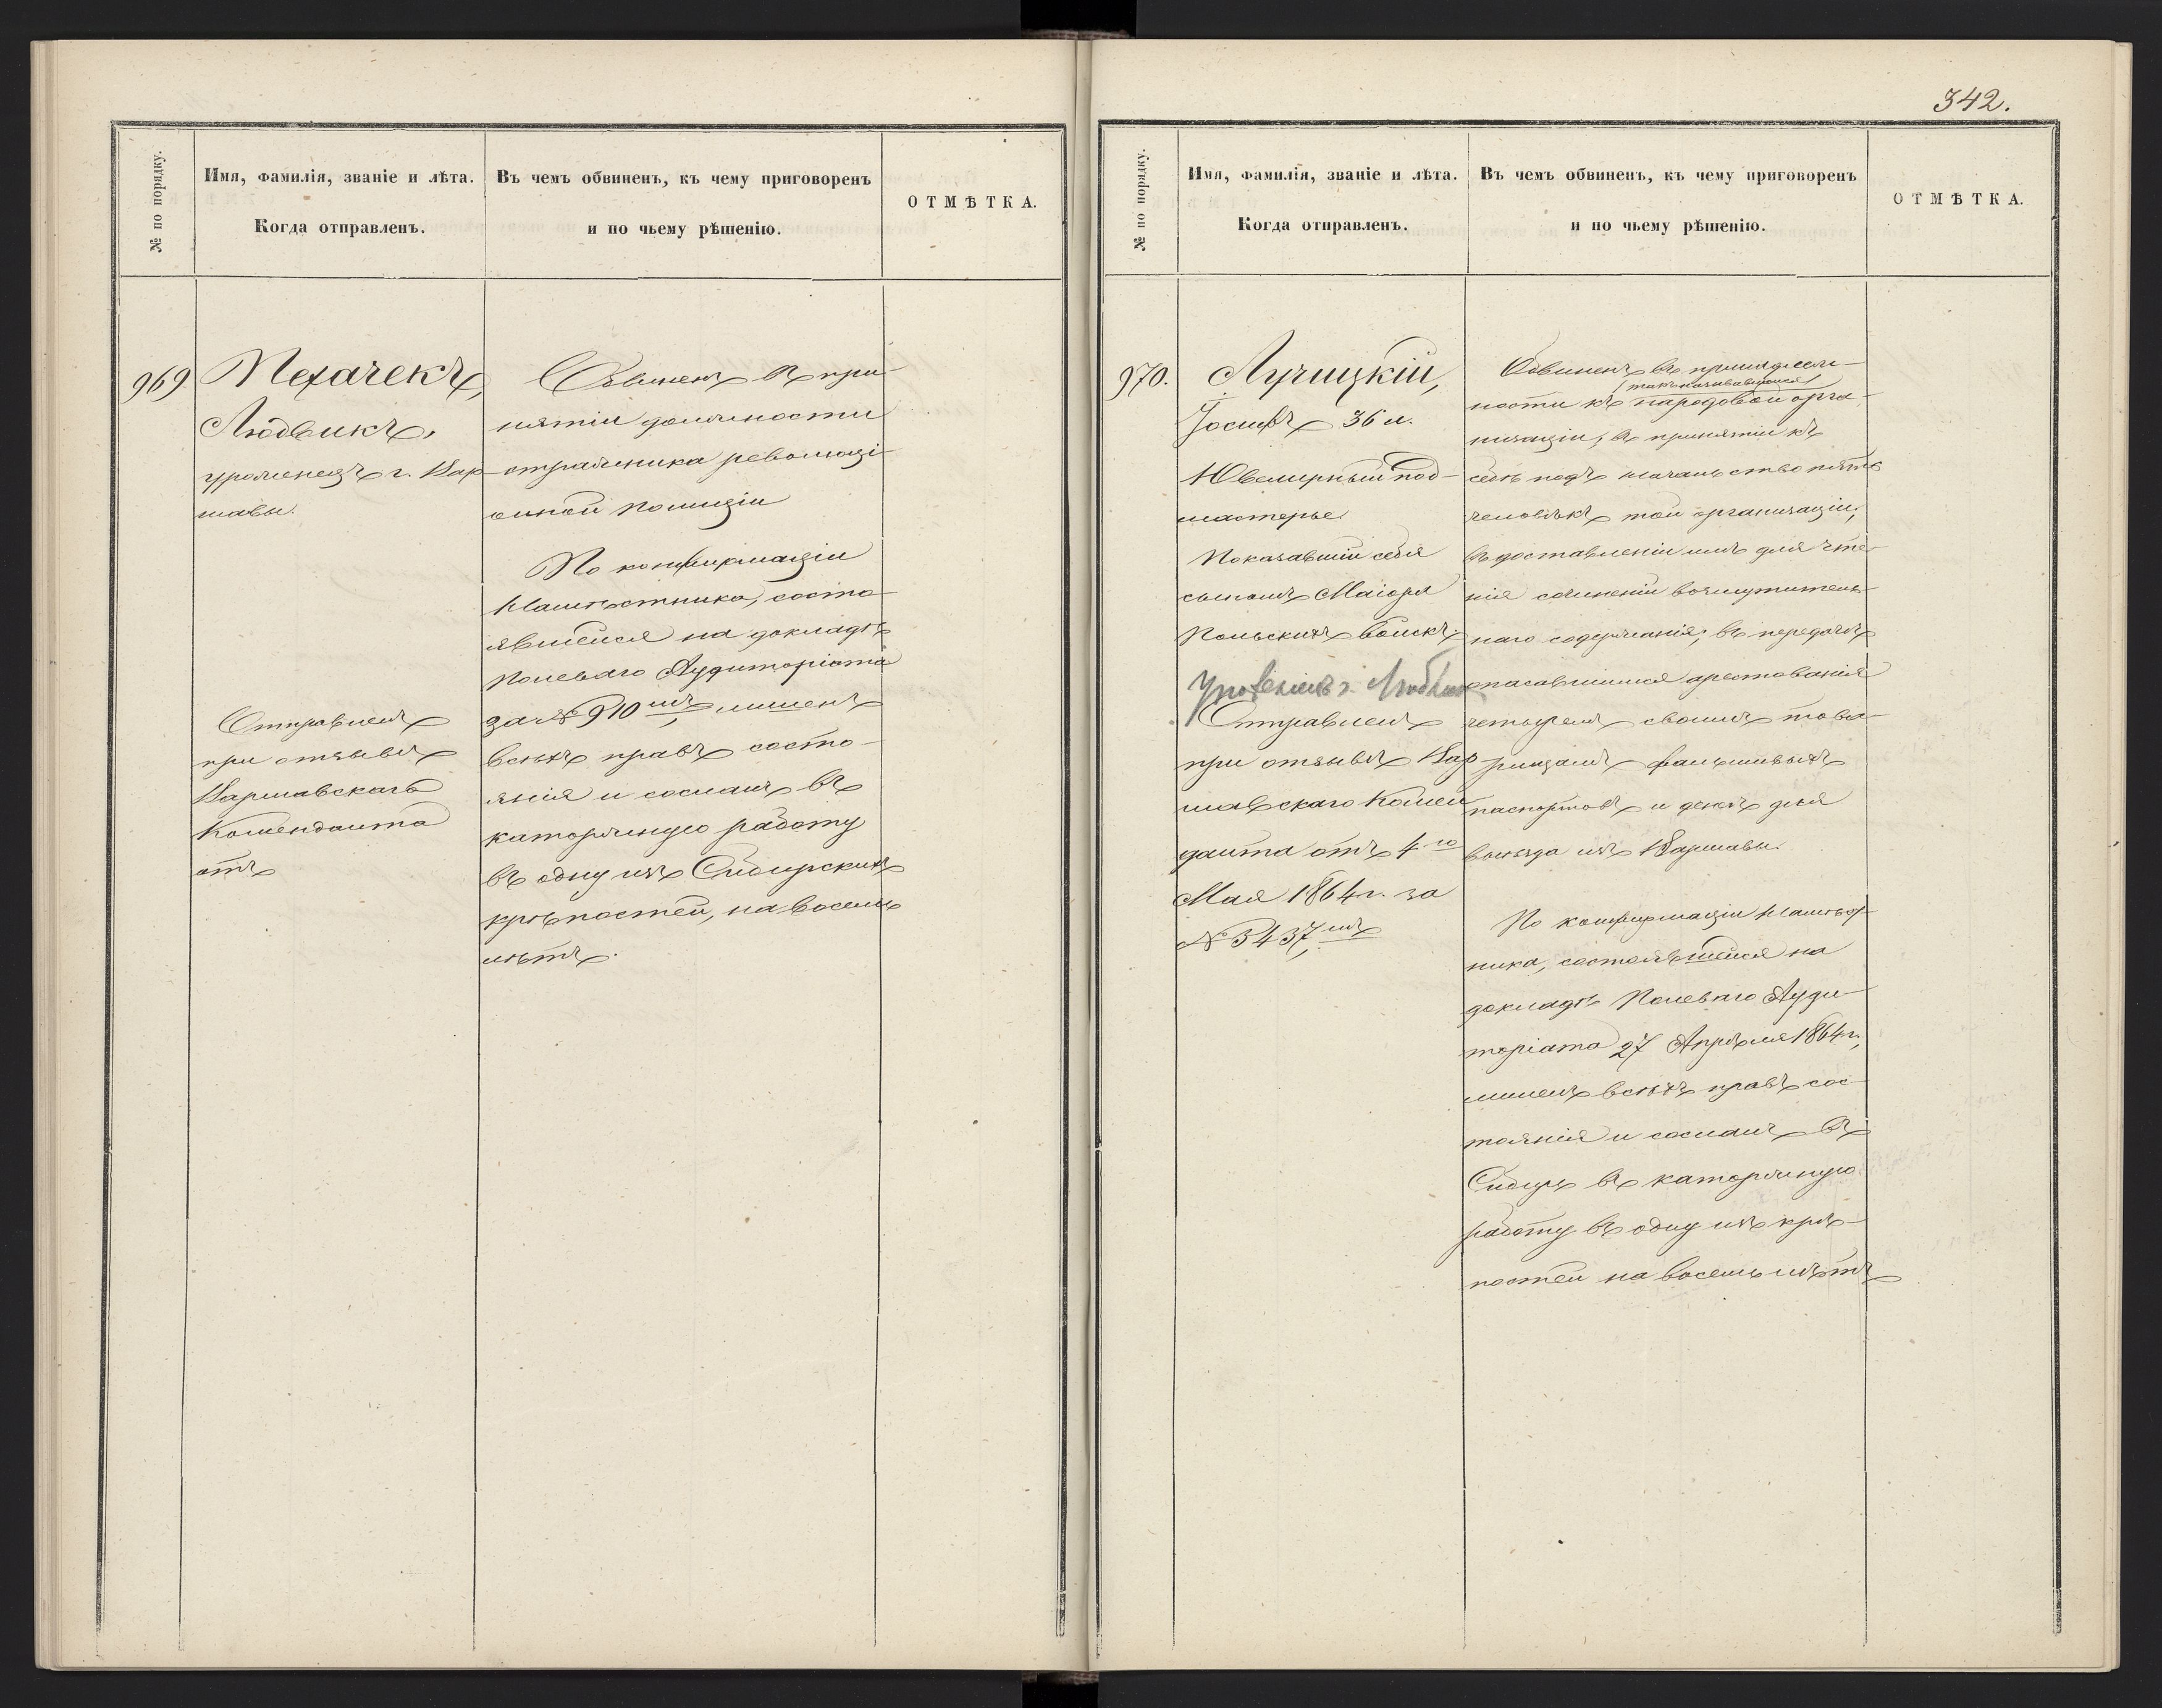 № по порядку.
Имя, фамилія, званіе и лѣта.
Когда отправленъ.
Въ чемъ обвиненъ, къ чему приговоренъ
и по чьему рѣшенію.
ОТМѢТКА.
969
Пехачекъ,
Людвикъ,
уроженецъ г. Вар
шавы.
Отправленъ
при отзывѣ
Варшавскаго
Коменданта
отъ
Обвиненъ въ при-
нятіи должности
стражника революці-
онной полиціи
По конфирмаціи
Намѣстника, состо-
явшейся на докладѣ
Полеваго Аудиторіата
за № 910мъ, лишенъ
всѣхъ правъ состо-
янія и сосланъ въ
каторжную работу
въ одну изъ Сибирскихъ
крѣпостей, на восемь
лѣтъ.
342.
№ по порядку.
Имя, фамилія, званіе и лѣта.
Когда отправленъ.
Въ чемъ обвиненъ, къ чему приговоренъ
и по чьему рѣшенію.
ОТМѢТКА.
970.
Лучицкій,
Іосифъ 36 л.
Ювелирный под-
мастерье.
Показавшій себя
сыномъ Маіора
Польскихъ войскъ.
Отправленъ
при отзывѣ Вар
шавскаго Комен
данта отъ 4го
Мая 1864 г. за
№ 3437мъ
Обвиненъ въ принадлеж-
такъ называвшейся
ности къ народовой орга-
низаціи, въ принятіи къ
себѣ подъ начальство пять
человѣкъ той организаціи,
въ доставленіи имъ для чте-
нія сочиненій возмутитель-
наго содержанія; въ передачѣ
опасавшимся арестованія
четыремъ своимъ това-
рищамъ фальшивыхъ
паспортовъ и денегъ для
выѣзда изъ Варшавы.
По конфирмаціи Намѣст-
ника, состоявшейся на
докладѣ Полеваго Ауди-
торіата 27 Апрѣля 1864 г.,
лишенъ всѣхъ правъ сос-
тоянія и сосланъ въ
Сибирь въ каторжную
работу въ одну изъ крѣ-
постей на восемь лѣтъ